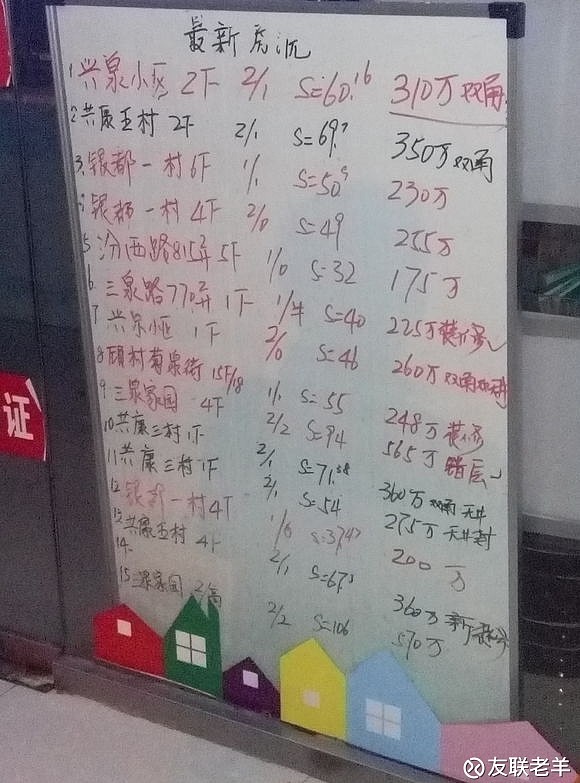 最新房源
1 兴泉小区 2F 2/1 S=60.16 310万 双南
2 共康五村 2F 2/1 S=69.7 350万 双南
3 银都一村 6F 1/1 S=50.9 230万
4 银都一村 4F 2/0 S=49 255万
5 汾西路815弄 5F 1/0 S=32 175万
6 三泉路770弄 1F 1/半 S=40 225万
7 兴泉小区 1F 2/0 S=46 260万 双南
8 顾村菊泉街 15F/18 1/1 S=55 248万
9 三泉家园 4F 2/2 S=94 565万 错层
10 共康三村 1F 2/1 S=71.58 360万 双南 天井
11 共康三村 1F 2/1 S=54 275万 天井
12 银都一村 4F 1/0 S=37.47 200万
13 共康五村 4F 2/1 S=67.5 360万 新
14
15 三泉家园 2/高 2/2 S=106 570万
证
友联老羊